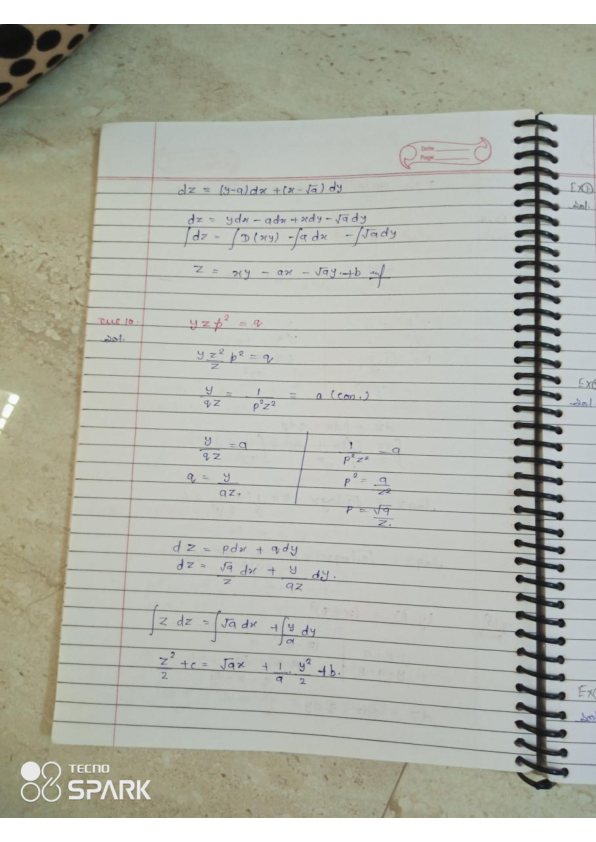 Date
Page
dz = (y-a)dx + (x-√a) dy
dz = ydx - adx + xdy - √ady
∫dz = ∫D(xy) - ∫a dx - ∫√ady
z = xy - ax - √ay + b
Ex ①
Sol.
Que 10. yzp² = q
Sol.
yz²/z p² = q
y/qz = 1/p²z² = a (con.)
y/qz = a
1/p²z² = a
q = y/az.
p² = a/z²
p = √a/z.
dz = pdx + qdy
dz = √a/z dx + y/az dy.
∫z dz = ∫√a dx + ∫y/a dy
z²/2 + c = √ax + 1/a y²/2 + b.
Sol
TECNO
SPARK